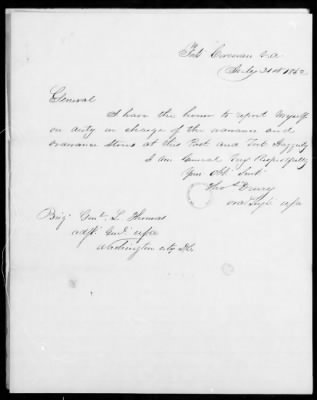 Fort Corcoran Va
July 31st 1862
General
I have the honor to report myself
on duty in charge of the ordnance and
ordnance stores at this Post and Fort Haggerty
I am General Very Respectfully
Your Obt Servt
Thos Drury
Ord Sergt USA
Brig Genl L Thomas
Adjt Genl USA
Washington City DC